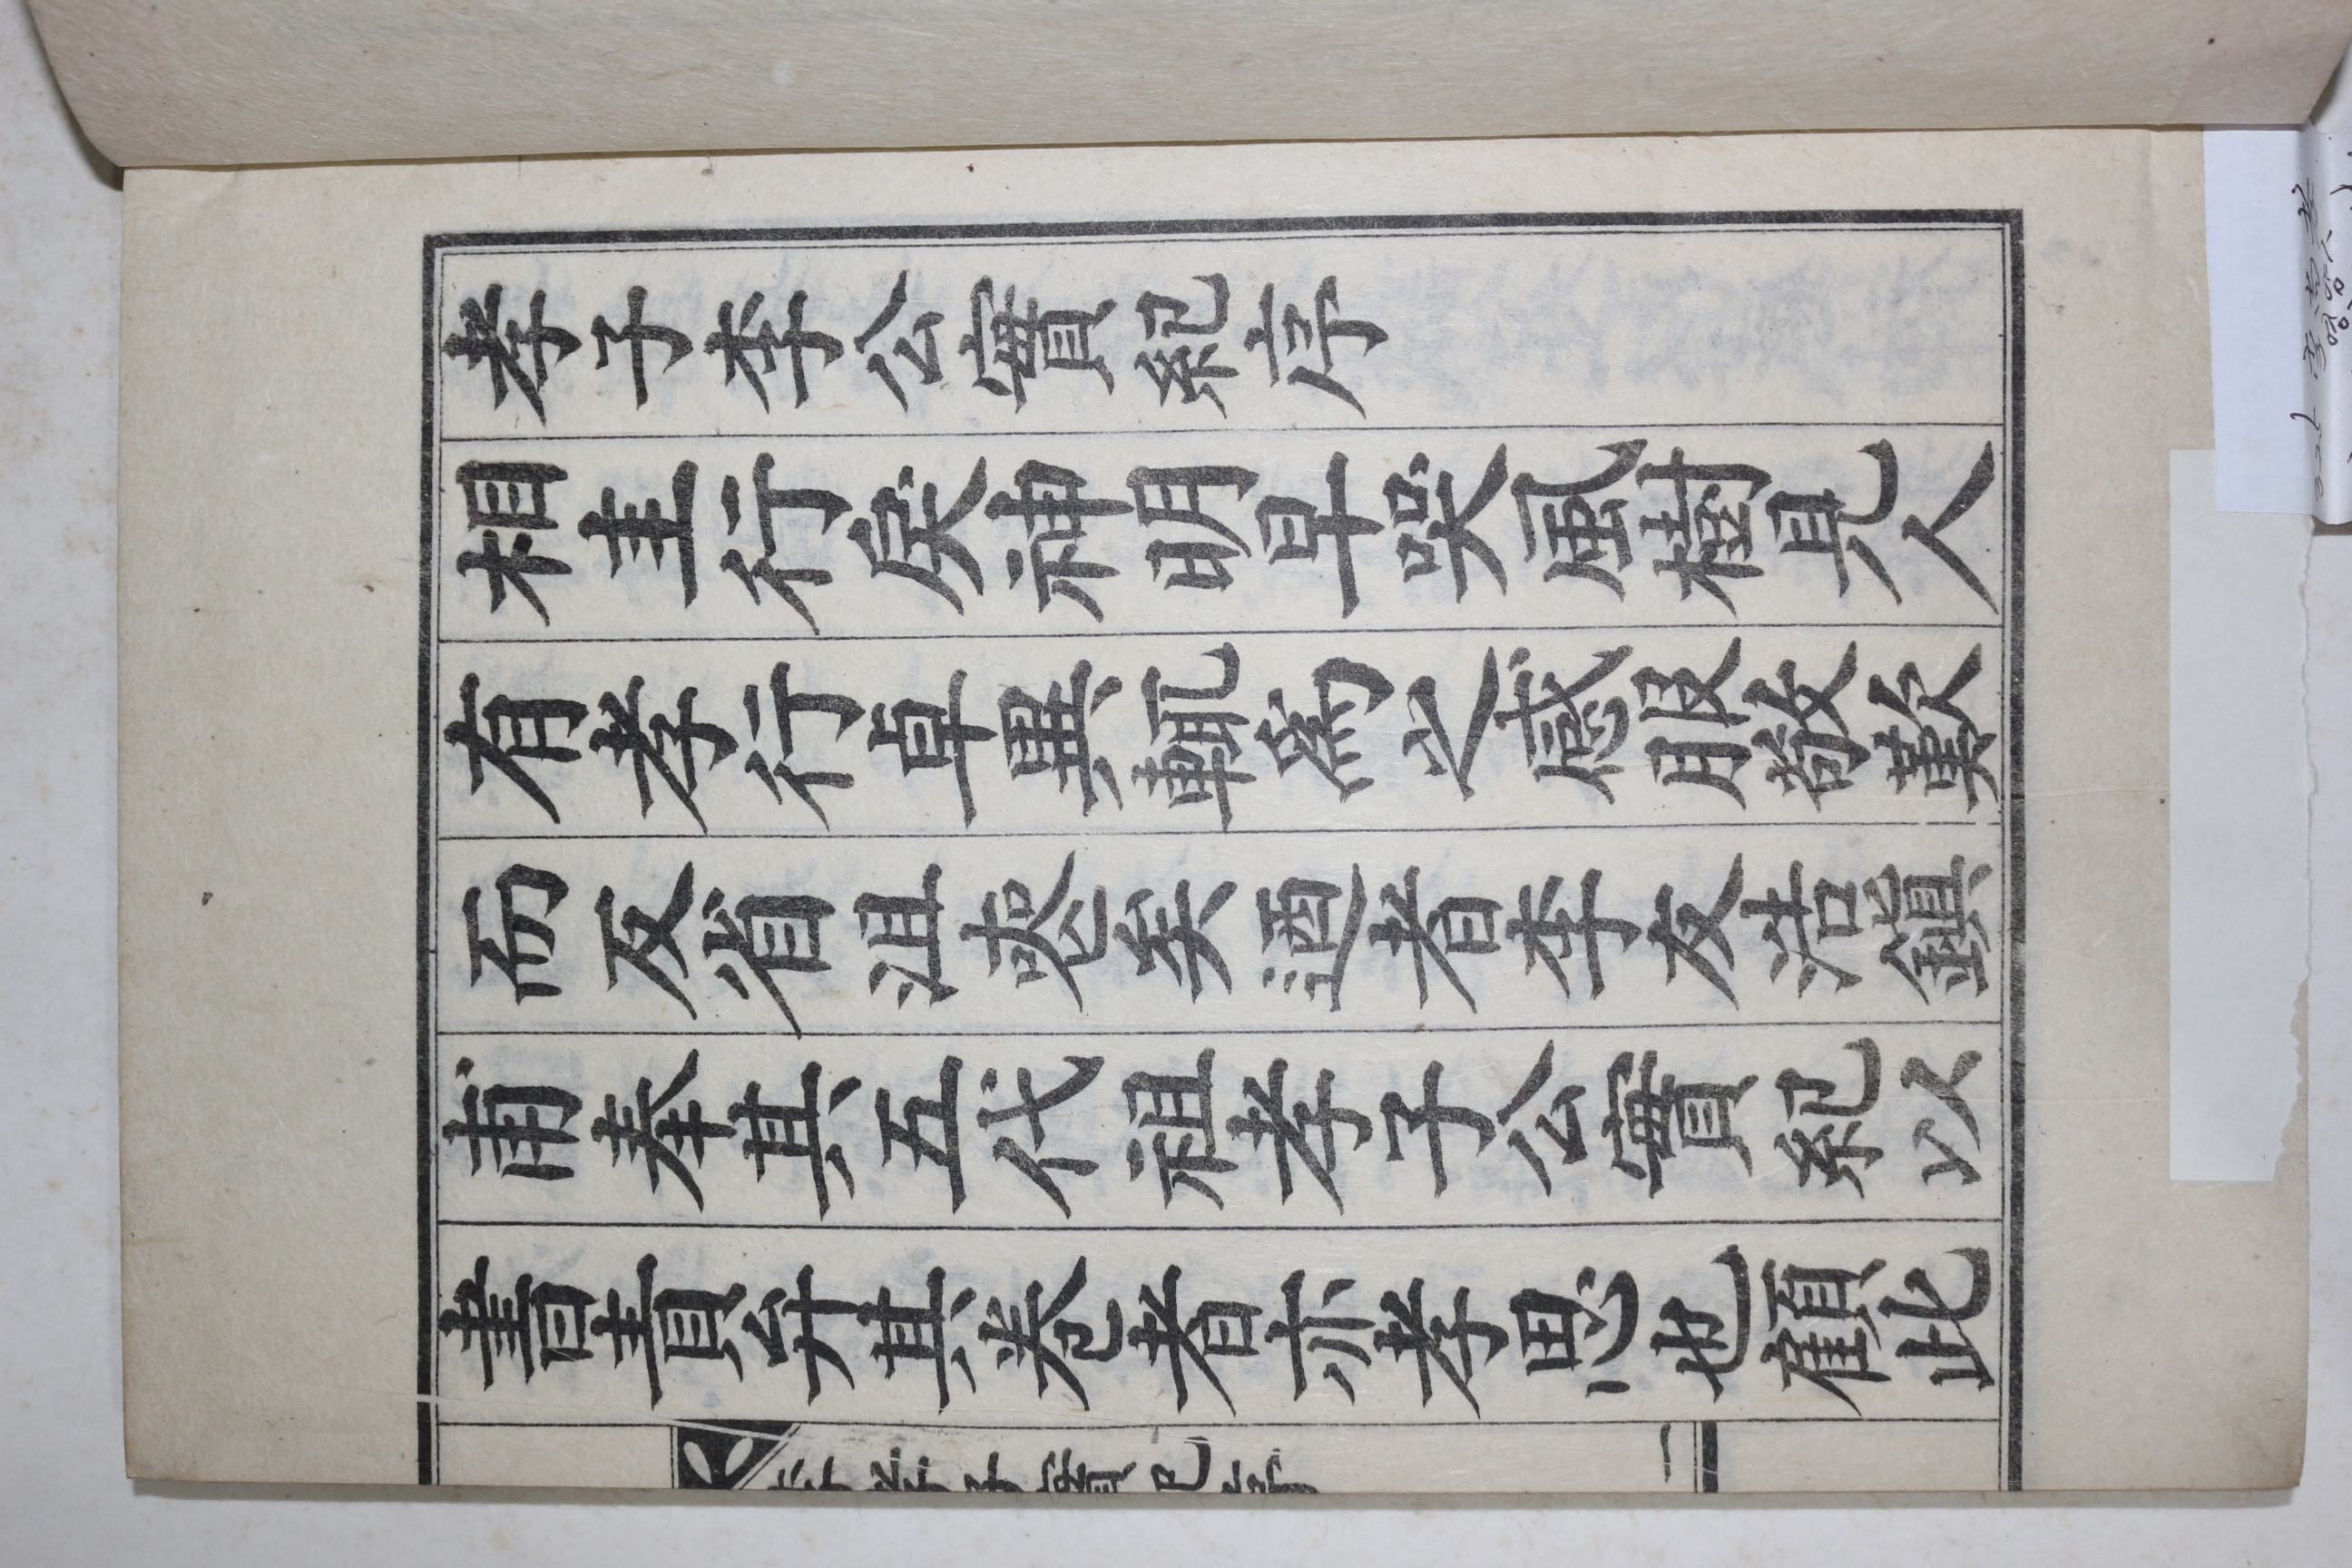 孝子李公實紀序
相圭行戾神明早哭風樹見人
有孝行卓異輒爲之感服敬歎
而反省沮喪矣迺者李友浩鎭
甫奉其五代祖孝子公實紀以
書責弁其卷者亦孝思也顧此
一